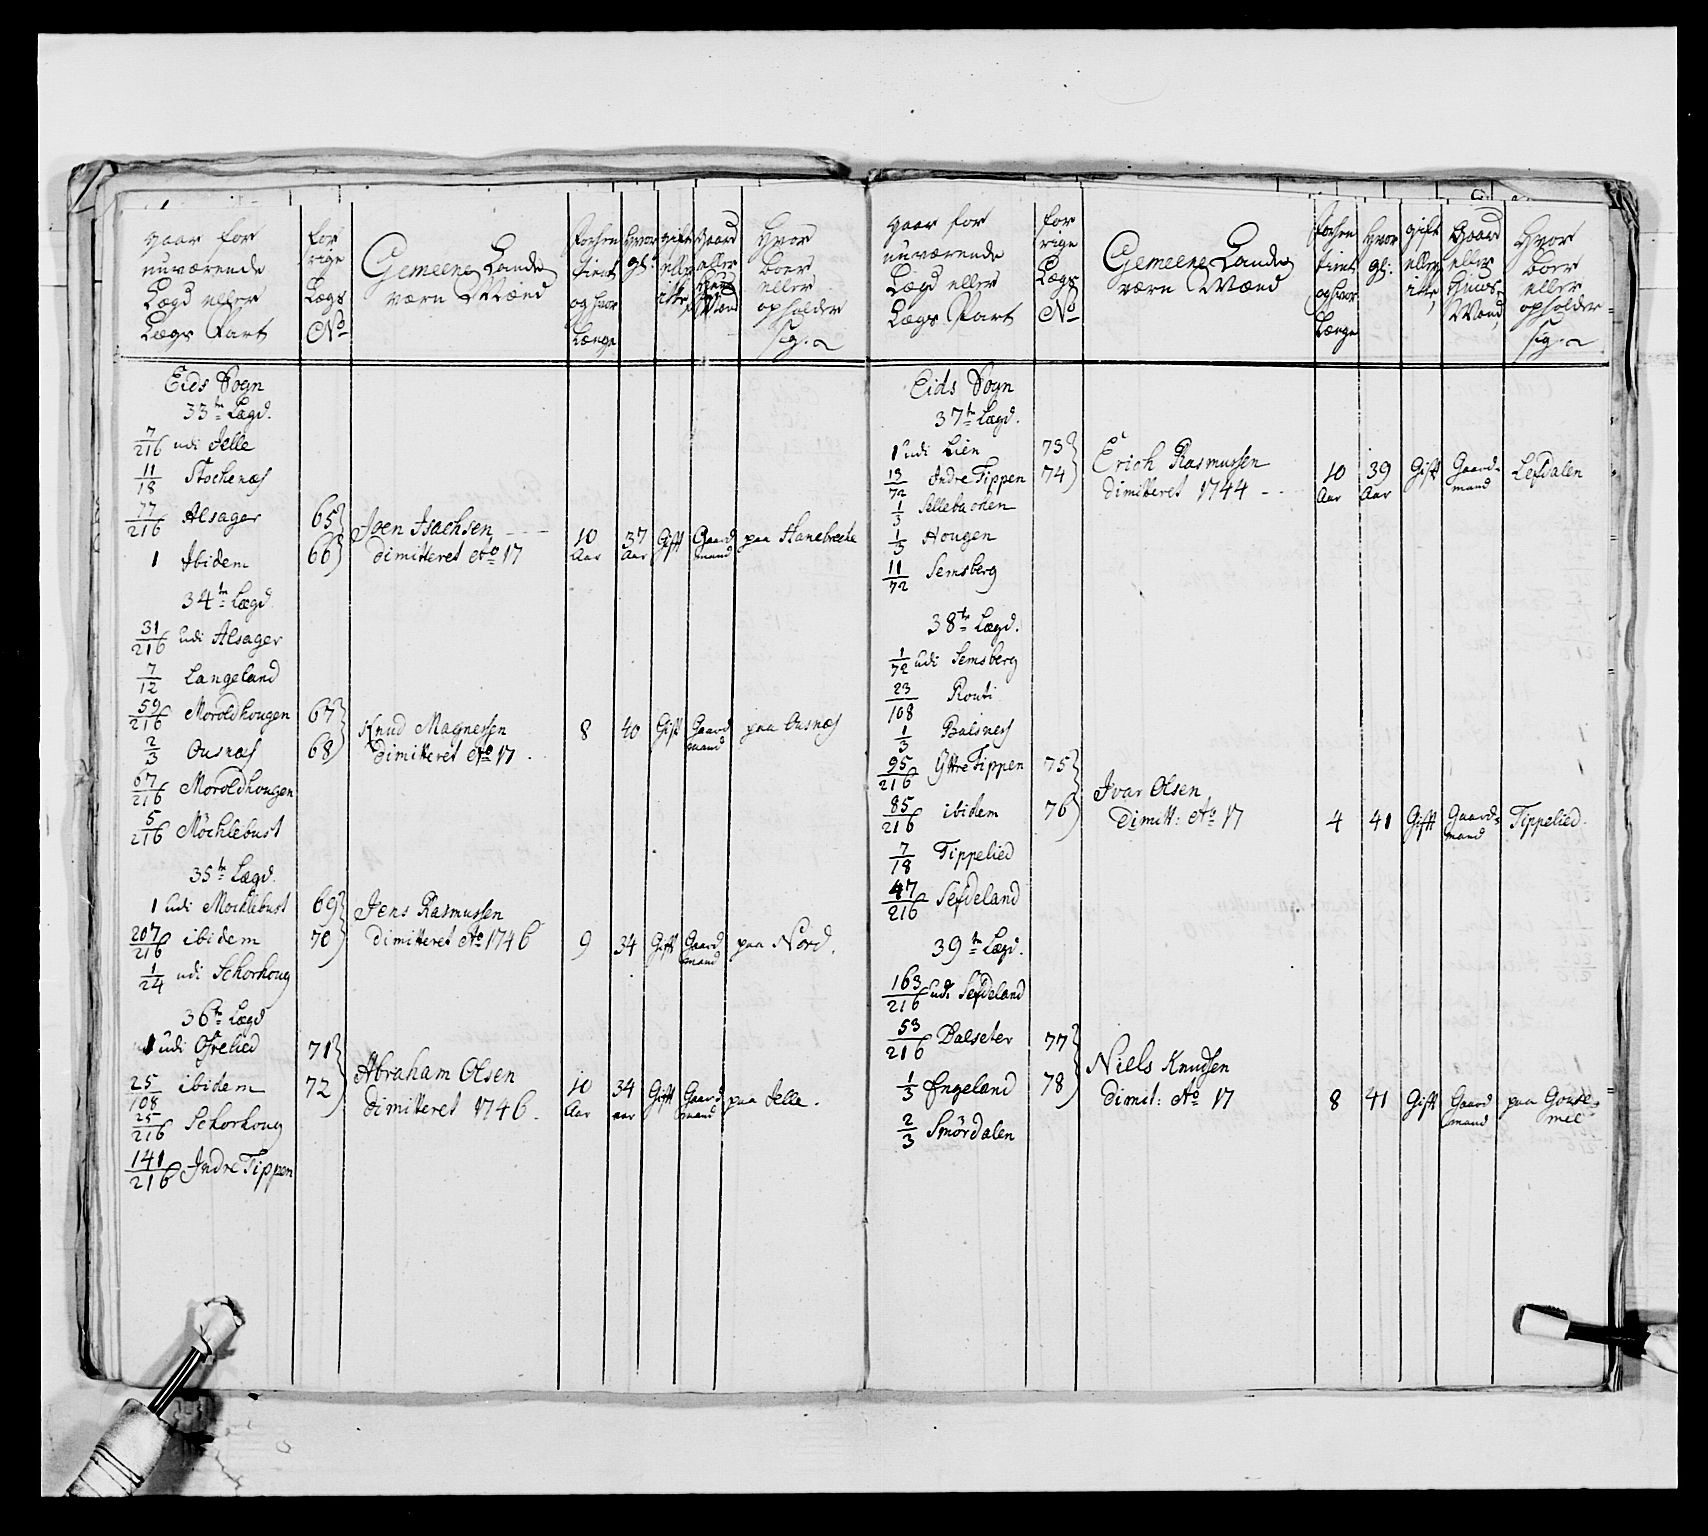 gaar for
nuværende
Lægd eller
Lægs Part
for
rige
Lægs
No
Gemeene Lands
værn Mænd
forhen
tient
og hvor
Længe
Hvor
gl:
gift
eller
ikke
Gaard
eller
Huus
Mand
Hvor
boer
eller
opholder
sig
Eids Sogn
33te Lægd.
7/216 udi Jelle
11/18 Stochenæs
77/216 Alsager 65
Joen Isachsen
1 Ibidem 66
dimitteret Ao 17
10 Aar
37 Aar
Gift
Gaard mand
paa Hanebrecke
34te Lægd
31/216 Udi Alsager
7/12 Langeland
59/216 Moroldhougen 67
Knud Magnessen
2/3 Ousnæs 68
dimitteret Ao 17
8
40
Gift
Gaard mand
paa Ousnæs
67/216 Moroldhougen
5/216 Möchlebust
35te Lægd.
1 udi Mochlebust 69
Jens Rasmussen
207/216 ibidem 70
dimitteret Ao 1746
9
34
Gift
Gaard mand
paa Nord.
1/24 udi Schorhoug
36te Lægd
1 udi Ofrelied 71
Abraham Olsen
25/108 ibidem 72
dimitteret 1746.
10 Aar
34 aar
Gift
Gaard mand
paa Jelle.
25/216 Schorhoug
141/216 Indre Tippen
gaar for
nuværende
Lægd eller
Lægs Part
for
rige
Lægs
No
Gemeene Lands
værn Mænd
forhen
tient
og hvor
Længe
Hvor
gl:
gift
eller
ikke
Gaard
eller
Huus
Mand
Hvor
boer
eller
opholder
sig
Eids Sogn
37te Lægd.
1 udi Lien 73
Erich Rasmussen
13/72 Indre Tippen 74
dimitteret 1744
10 Aar
39 Aar
Gift
Gaard-mand
Lefdalen
1/3 Sellebachen
1/3 Hougen
11/72 Semsberg
38te Lægd.
1/72 udi Semsberg
23/108 Routi
1/3 Balsnes
95/216 Yttre Tippen 75
Ivar Olsen
85/216 ibidem 76
dimitt: Ao 17
4
41
Gift
Gaard-mand
Tippelied.
7/18 Tippelied
47/216 Sefdeland
39te Lægd.
163/216 udi Sefdeland
53/216 Dalseter 77
Niels Knudsen
1/3 Engeland 78
dimit: Ao 17
8
41
Gift
Gaard mand
paa
2/3 Smördalen